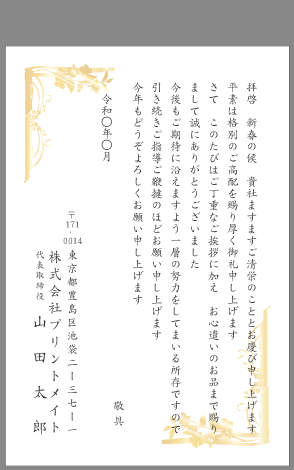 拝啓　新春の候　貴社ますますご清栄のこととお慶び申し上げます
平素は格別のご高配を賜り厚く御礼申し上げます
さて　このたびはご丁重なご挨拶に加え　お心遣いのお品まで賜り
まして誠にありがとうございました
今後もご期待に沿えますよう一層の努力をしてまいる所存ですので
引き続きご指導ご鞭撻のほどお願い申し上げます
今年もどうぞよろしくお願い申し上げます
敬具
令和〇年〇月
〒171-0014
東京都豊島区池袋二ー三七ー一
株式会社プリントメイト
代表取締役　山田太郎